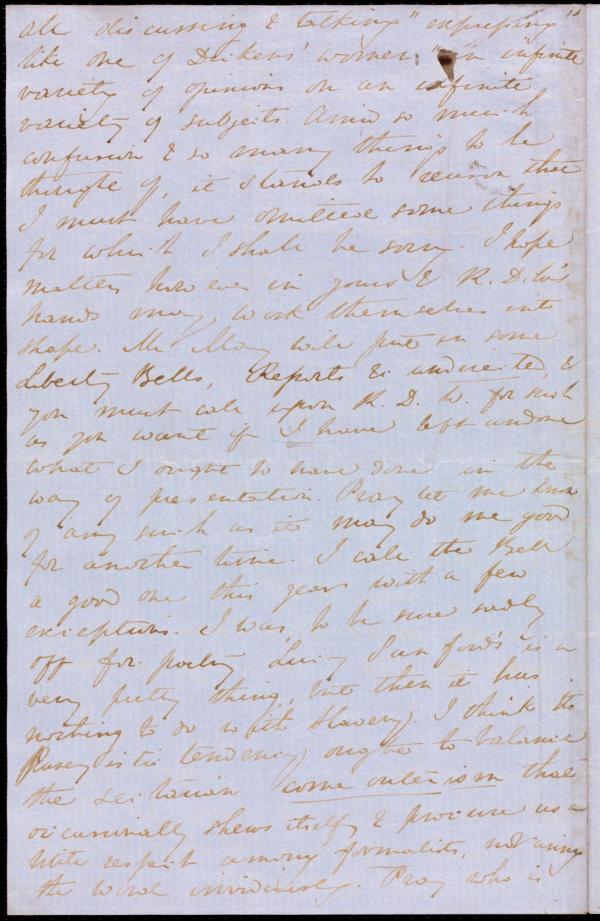 all discussing & talking "expressing
like one of Dickens' women "an infinite
variety of opinions on an infinite
variety of subjects. Amid so much
confusion & so many things to be
thought of, it stands to reason that
I must have omitted some things
for which I shall be sorry. I hope
matters however in yours & R. D. W's
hands may work themselves into
shape. Mr May will put in some
Liberty Bells, Reports &c undirected, &
you must call upon R. D. W. for such
as you want if I have left undone
what I ought to have done in the
way of presentation. Pray let me know
of any such as it may do me good
for another time. I call the Bell
a good one this year with a few
exceptions. I was, to be sure sadly
off for poetry. Sanford's is a
very pretty thing, but then it has
nothing to do with Slavery. I think its
Puseyistic tendency ought to balance
the sectarian come outerism that
occasionally shews itself & procure us a
little respect among formalists, not using
the word invidiously. Pray who is